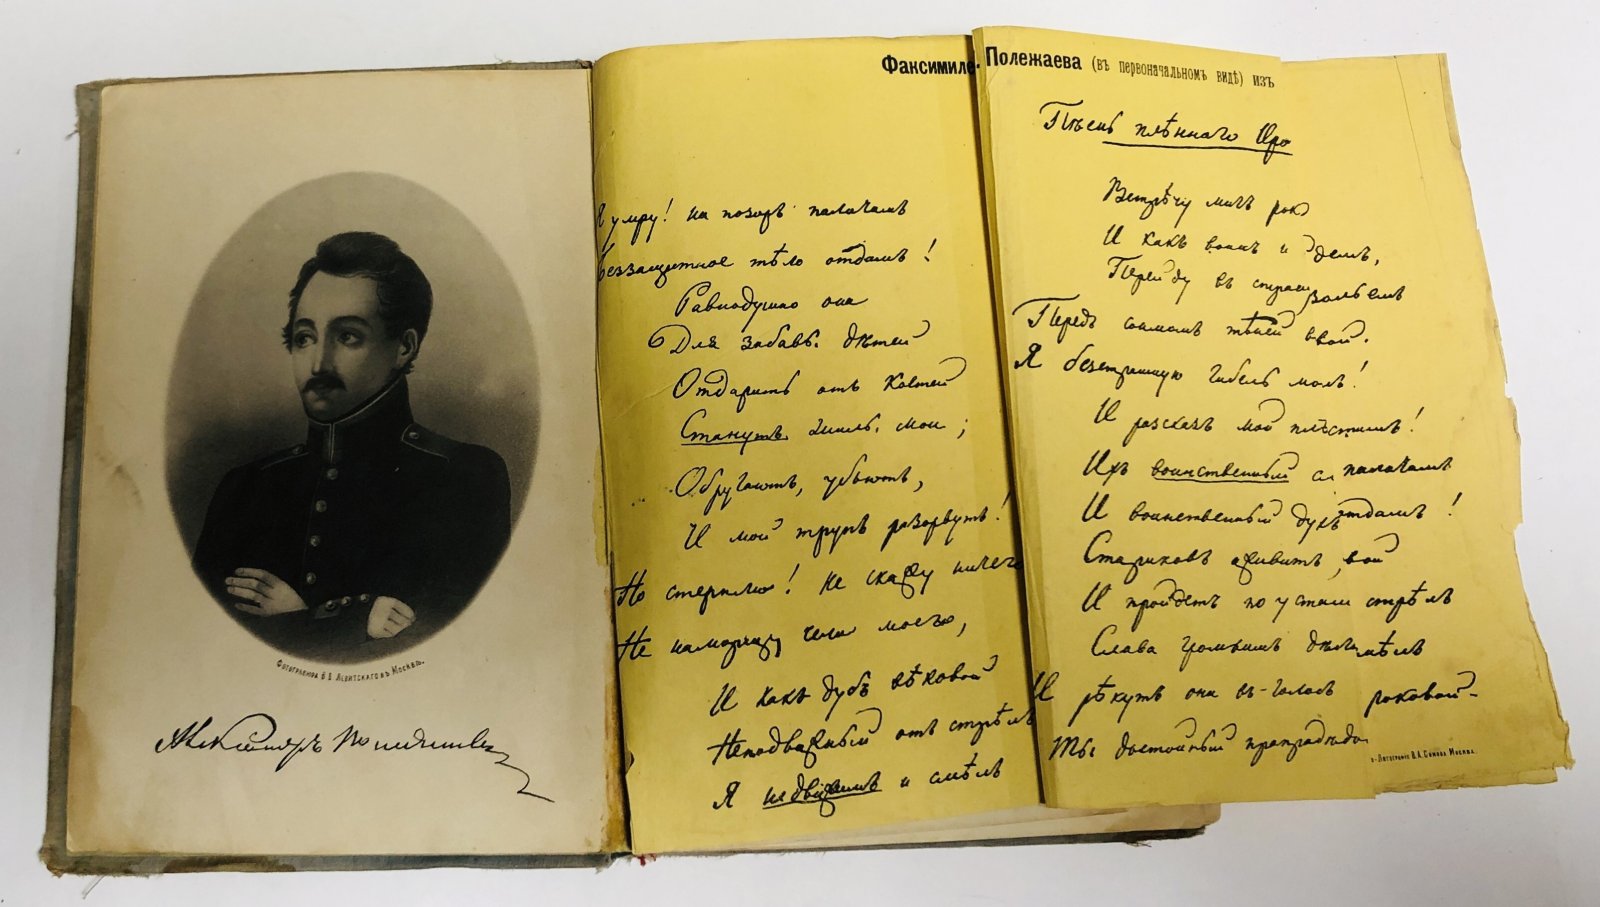 Фототипогравюра В. В. Левитскаго въ Москвѣ.
Александръ Полежаевъ
Факсимиле Полежаева (въ первоначальномъ видѣ) изъ
Я умру! на позоръ палачамъ
Беззащитное тѣло отдамъ!
Равнодушно они
Для забавы дѣтей
Отдирать отъ костей
Станутъ жилы мои;
Обругаютъ, убьютъ,
И мой трупъ разорвутъ!
Но стерплю! Не скажу ничего
Не наморщу чела моего,
И какъ дубъ вѣковой
Неподвижный отъ стрѣлъ
Я недвижимъ и смѣлъ
Пѣснь плѣннаго Иро
Встрѣчу мигъ рок
И какъ воинъ и
Перейду въ стран
Передъ сонмомъ тѣней
Я безстрашную гибель мою!
И разсказъ мой плѣстилъ!
Ихъ воинственный палачамъ
И воинственный духъ отдамъ!
Стариковъ оживитъ,
И пройдетъ по устамъ стрѣлъ
Слава громкимъ дѣламъ
И рѣкутъ они въ голосъ роковой
Ты достойный прапрадѣда
Литографiя В. А. Симова Москва.